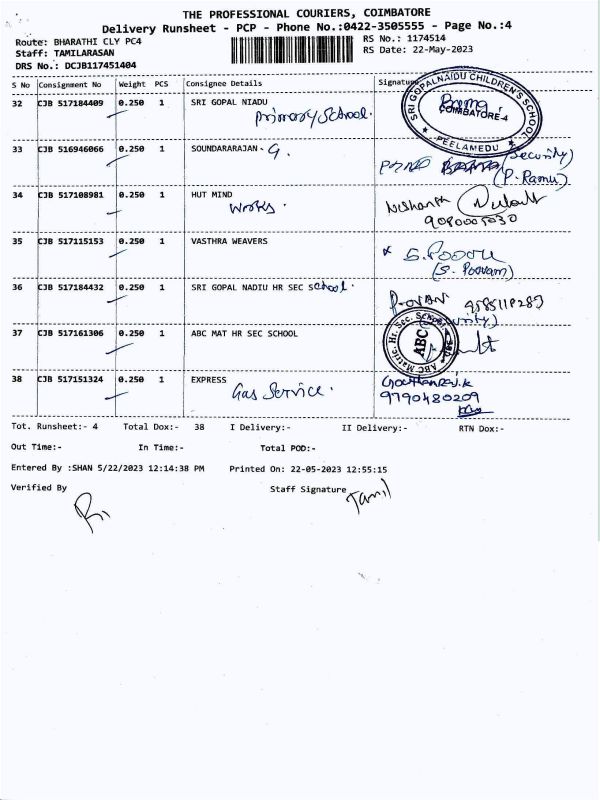 THE PROFESSIONAL COURIERS, COIMBATORE
Delivery Runsheet - PCP - Phone No.:0422-3505555 - Page No.:4
Route: BHARATHI CLY PC4 RS No.: 1174514
Staff: TAMILARASAN RS Date: 22-May-2023
DRS No.: DCJB117451404
S No Consignment No Weight PCS Consignee Details Signature
32 CJB 517184409 0.250 1 SRI GOPAL NIADU
Primary School.
SRI GOPALNAIDU CHILDREN'S SCHOOL
COIMBATORE-4
PEELAMEDU
33 CJB 516946066 0.250 1 SOUNDARARAJAN - G.
(Security)
(P. Ramu)
34 CJB 517108981 0.250 1 HUT MIND
Works. Nishanth
9090005030
35 CJB 517115153 0.250 1 VASTHRA WEAVERS
(S. Poovam)
36 CJB 517184432 0.250 1 SRI GOPAL NADIU HR SEC School.
9585118289
37 CJB 517161306 0.250 1 ABC MAT HR SEC SCHOOL
ABC Matric. Hr. Sec. School
ABC
38 CJB 517151324 0.250 1 EXPRESS
Gas Service.
9790480209
Tot. Runsheet:- 4 Total Dox:- 38 I Delivery:- II Delivery:- RTN Dox:-
Out Time:- In Time:- Total POD:-
Entered By :SHAN 5/22/2023 12:14:38 PM Printed On: 22-05-2023 12:55:15
Verified By Staff Signature Tamil